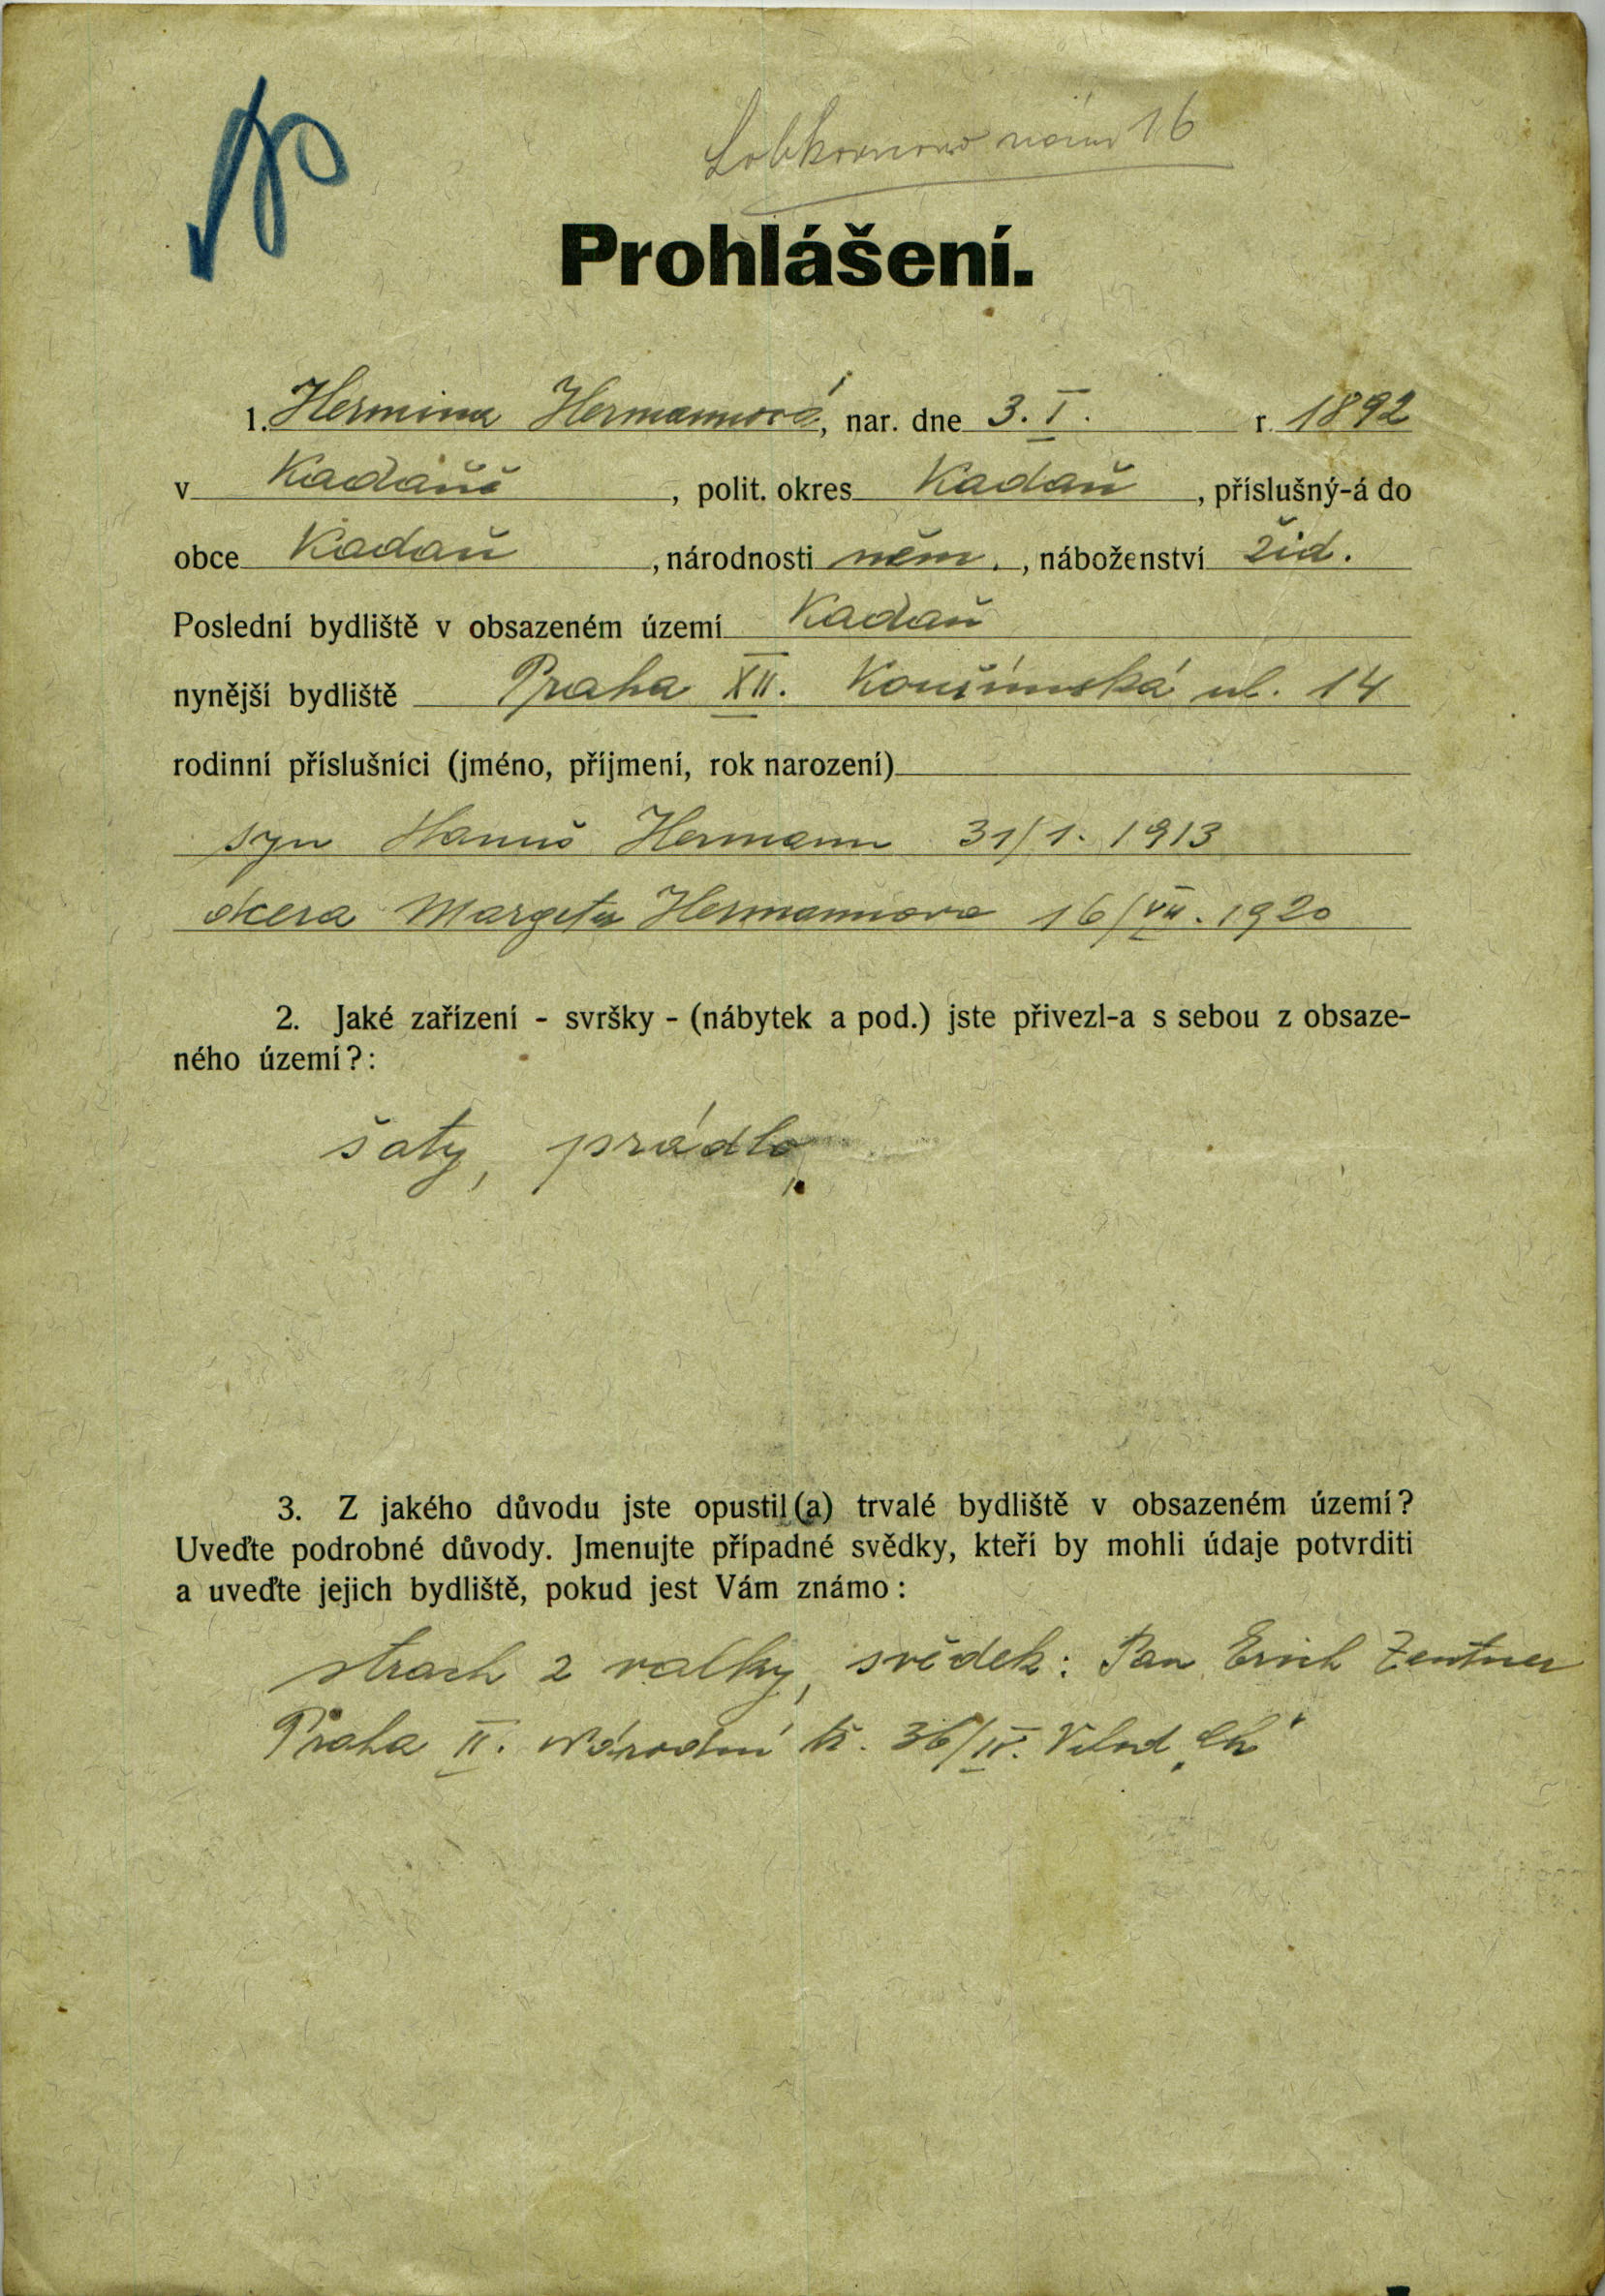 16
Prohlášení.
1. Hermina Hermannová, nar. dne 3. I. r. 1892
v Kadáňě, polit. okres Kadaň, příslušný-á do
obce Kadaň, národnosti něm., náboženství žid.
Poslední bydliště v obsazeném území Kadaň
nynější bydliště Praha XII. Kouřimská ul. 14
rodinní příslušníci (jméno, příjmení, rok narození)
syn Hanuš Hermann 31/1. 1913
dcera Margeta Hermannova 16/VII. 1920
2. Jaké zařízení - svršky - (nábytek a pod.) jste přivezl-a s sebou z obsaze-
ného území?:
šaty, prádlo
3. Z jakého důvodu jste opustil(a) trvalé bydliště v obsazeném území?
Uveďte podrobné důvody. Jmenujte případné svědky, kteří by mohli údaje potvrditi
a uveďte jejich bydliště, pokud jest Vám známo:
strach z valky, svědek: Pan Erich Zentner
Praha II. Národní tř. 36/IV.